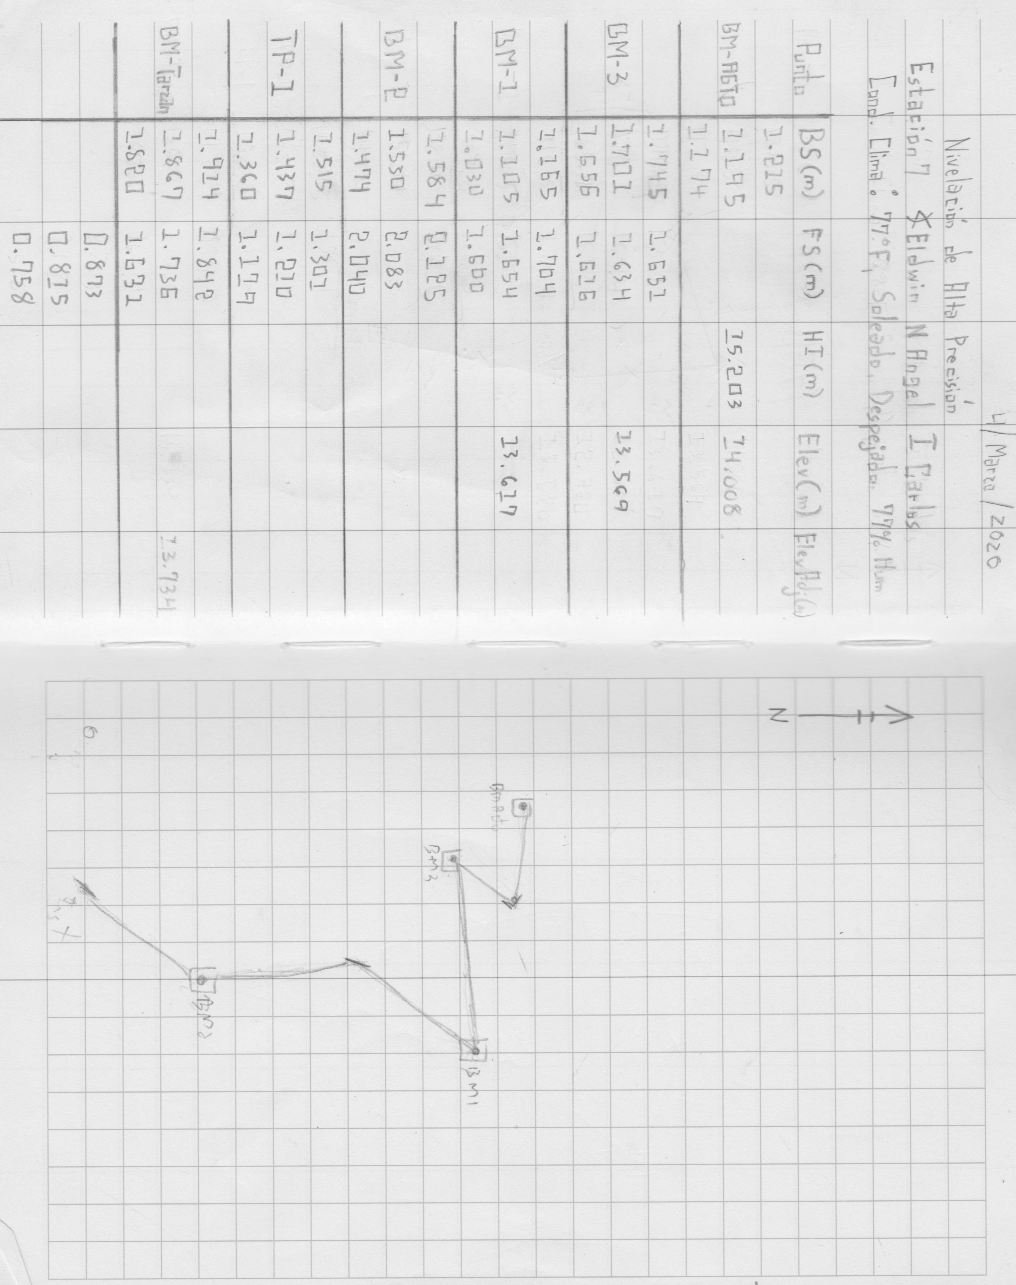 4/Marzo/2020
Nivelación de Alta Precisión
Estación 7 Eldwin N Angel I Carlos
Cond. Clima: 77°F, Soleado, Despejado, 77% Hum
Punto BS(m) FS(m) HI(m) Elev(m) ElevAdj(m)
1.215
BM-AGTO 1.195 15.203 14.008
1.174
1.745 1.651
BM-3 1.701 1.634 13.569
1.656 1.616
1.165 1.704
BM-1 1.105 1.654 13.617
1.030 1.600
1.584 2.125
BM-2 1.530 2.083
1.474 2.040
1.515 1.301
TP-1 1.437 1.210
1.360 1.119
1.914 1.842
BM-Tarzán 1.867 1.736 13.734
1.820 1.631
0.873
0.815
0.758
N
BM Agto
BM3
BM1
BM2